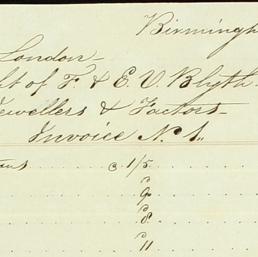 Birmingh
London
t of F. & E. V. Blyth
Jewellers & Factors
Invoice No 1.
@ 1/5
9
8
11